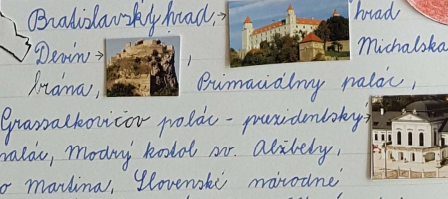 Bratislavský hrad, hrad
Devín , Michalska
brána, Primaciálny palác,
Grassalkovičov palác - prezidentský
palác, Modrý kostol sv. Alžbety,
o Martina, Slovenské národné